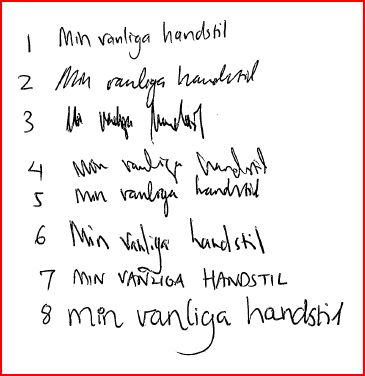 1 Min vanliga handstil
2 Min vanliga handstil
3 Min vanliga handstil
4 Min vanliga handstil
5 Min vanliga handstil
6 Min vanliga handstil
7 MIN VANLIGA HANDSTIL
8 min vanliga handstil